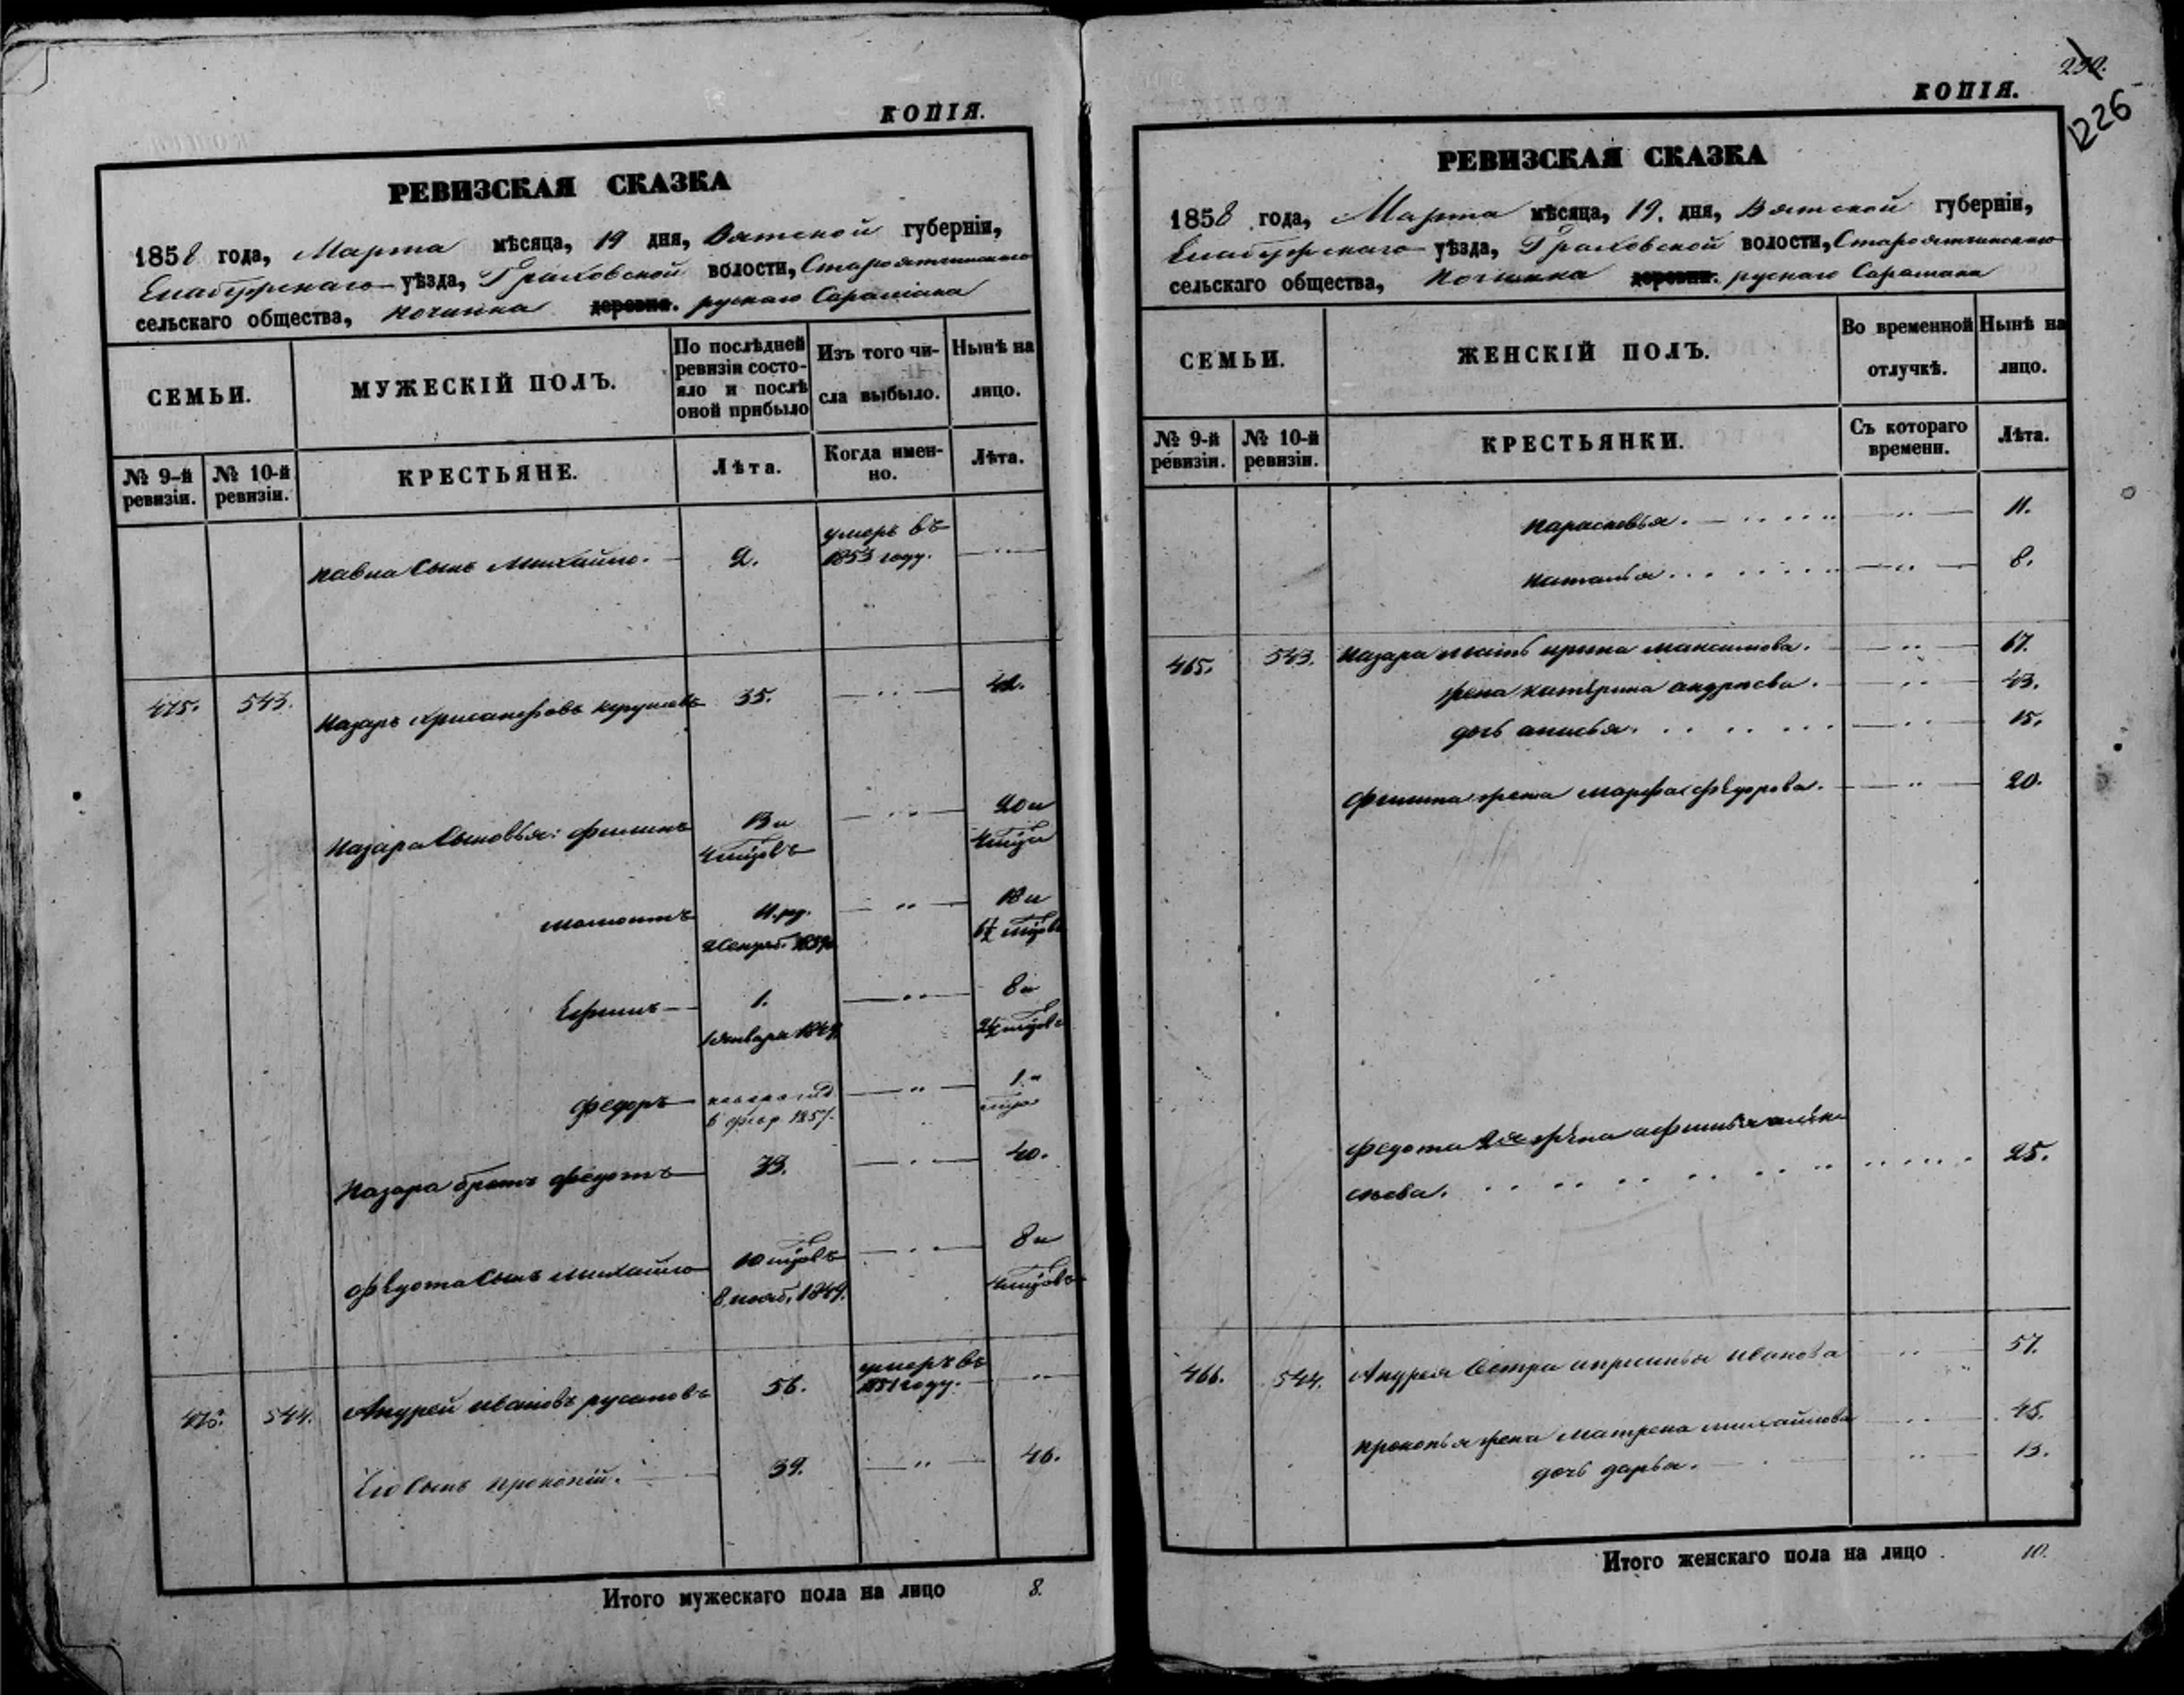 КОПІЯ.
РЕВИЗСКАЯ СКАЗКА
1858 года, Марта мѣсяца, 19 дня, Вятской губерніи,
Елабужскаго уѣзда, Граховской волости, Староятчинскаго
сельскаго общества, починка деревни. рускаго Сарамака
СЕМЬИ.
МУЖЕСКІЙ ПОЛЪ.
По послѣдней
ревизіи состо-
яло и послѣ
оной прибыло
Изъ того чи-
сла выбыло.
Нынѣ на
лицо.
№ 9-й
ревизіи.
№ 10-й
ревизіи.
КРЕСТЬЯНЕ.
Лѣта.
Когда имен-
но.
Лѣта.
умеръ въ
Павла Сынъ Михайло. 2. 1853 году.
543. Назаръ Хрисанфовъ 35.
Назара Сыновья: Филипъ 13 и 20 и
Мамонтъ 11. 18 и
Ефимъ 1. 8 и
1 Генваря 1849.
Федоръ 1 и
1857.
Назара братъ Федотъ 33. 40.
Федота Сынъ Михайло 10 8 и
8 1849.
умеръ въ
544. Андрей Ивановъ Русановъ 56. 1851 году.
Его Сынъ Прокопій. 39. 46.
Итого мужескаго пола на лицо 8.
КОПІЯ.
1226
РЕВИЗСКАЯ СКАЗКА
1858 года, Марта мѣсяца, 19. дня, Вятской губерніи,
Елабужскаго уѣзда, Граховской волости, Староятчинскаго
сельскаго общества, Починка деревни. рускаго Сарамака
СЕМЬИ.
ЖЕНСКІЙ ПОЛЪ.
Во временной
отлучкѣ.
Нынѣ на
лицо.
№ 9-й
ревизіи.
№ 10-й
ревизіи.
КРЕСТЬЯНКИ.
Съ котораго
времени.
Лѣта.
Парасковья. 11.
Наталья. 8.
465. 543. Назара мать Ирина Максимова. 67.
жена Катерина Андреева. 43.
дочь Анисья. 15.
Филипа жена Марфа Федорова. 20.
Федота 2я жена Афимья
25.
466. 544. Андрея Сестра Иванова 57.
Прокопья жена Матрена Михайлова 45.
дочь Дарья. 13.
Итого женскаго пола на лицо 10.